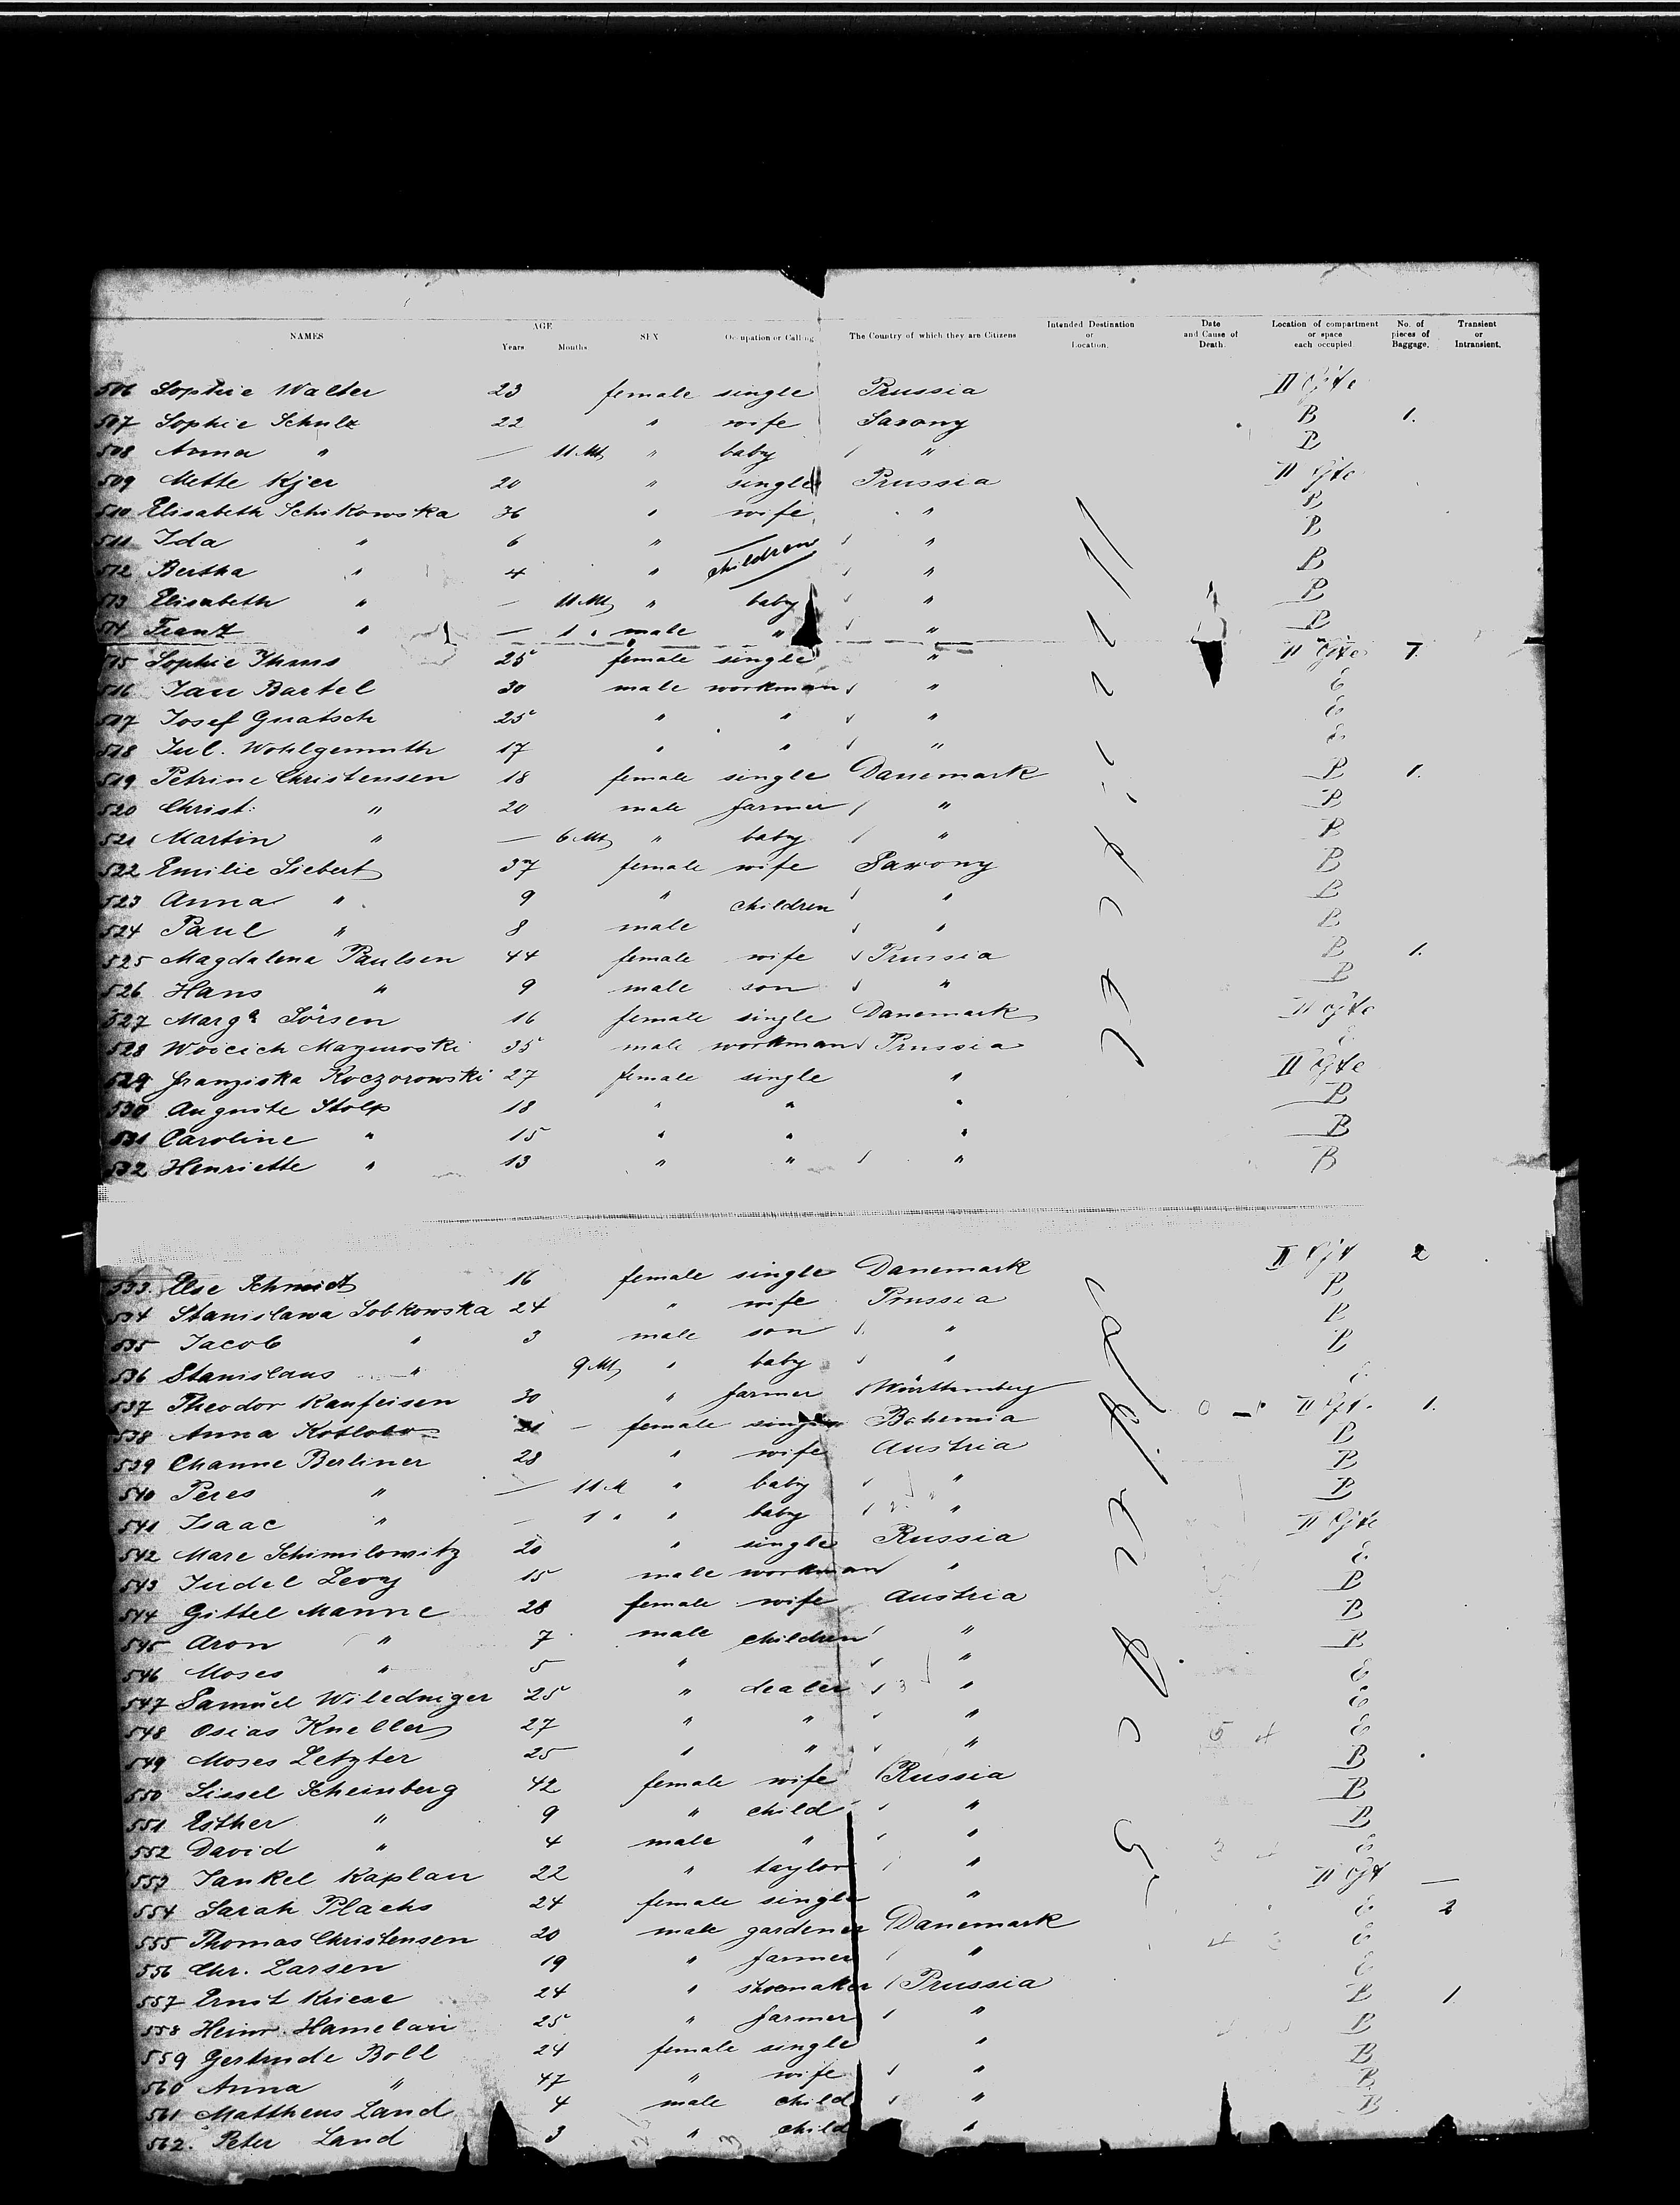 NAMES AGE Years Months SEX Occupation or Calling The Country of which they are Citizens Intended Destination or Location. Date and Cause of Death. Location of compartment or space each occupied No. of pieces of Baggage. Transient or Intransient.
506 Sophie Walter 23 female single Prussia II
507 Sophie Schulz 22 " wife Saxony B 1.
508 Anna " — 11 Mt " baby " B
509 Mette Kjer 20 " single Prussia II
510 Elisabeth Schikowska 36 " wife " B
511 Ida " 6 " children " B
512 Bertha " 4 " " B
513 Elisabeth " — 11 Mt " baby " B
514 Franz " — 1 " male " " B
515 Sophie 25 female single " II 7.
516 Jan Bartel 30 male workman " E
517 Josef Gnatsch 25 " " " E
518 Jul. Wohlgemuth 17 " " " E
519 Petrine Christensen 18 female single Danemark B 1.
520 Christ: " 20 male farmer " B
521 Martin " — 6 Mt " baby " B
522 Emilie Siebert 37 female wife Saxony B
523 Anna " 9 " children " B
524 Paul " 8 male " B
525 Magdalena Paulsen 44 female wife Prussia B 1.
526 Hans " 9 male son " B
527 Marg. Sörsen 16 female single Danemark II
528 Woicich Mazuroski 35 male workman Prussia E
529 Franziska Koczorowski 27 female single " II
530 Auguste Stolp 18 " " " B
531 Caroline " 15 " " " B
532 Henriette " 13 " " " B
533. Else Schmidt 16 female single Danemark II 2
534 Stanislawa Sobkowska 24 " wife Prussia B
535 Jacob " 3 male son " B
536 Stanislaus " 9 Mt " baby " B
537 Theodor Kaufeisen 30 " farmer Württemberg E
538 Anna 21 — female single Bohemia II 1.
539 Channe Berliner 28 " wife Austria B
540 Peres " — 11 M " baby " B
541 Isaac " — 1 " " baby " B
542 Mare Schimilowitz 20 " single Russia II
543 Judel Levy 15 male workman " E
544 Gittel Manne 28 female wife Austria B
545 Aron " 7 male children " B
546 Moses " 5 " " B
547 Samuel Wiledniger 25 " dealer " E
548 Osias Kneller 27 " " " E
549 Moses Letzter 25 " " " E
550 Sissel Scheinberg 42 female wife Russia B
551 Esther " 9 " child " B
552 David " 4 male " " B
553 Jankel Kaplan 22 " taylor " E
554 Sarah Plachs 24 female single " II —
555 Thomas Christensen 20 male gardener Danemark E 2
556 Chr. Larsen 19 " farmer " E
557 Ernst Kriese 24 " shoemaker Prussia E
558 Heinr. Hamelau 25 " farmer " B 1
559 Gertrude Boll 24 female single " B
560 Anna " 47 " wife " B
561 Mattheus Land 4 male child " B
562. Peter Land 3 " child " B